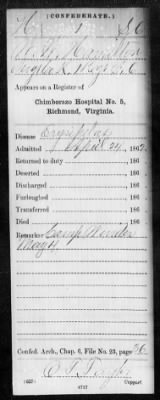 (CONFEDERATE.)
H 1 S C
Appears on a Register of
Chimborazo Hospital No. 5,
Richmond, Virginia.
Disease Erysipelas
Admitted April 24, 1862.
Returned to duty , 186
Deserted , 186
Discharged , 186
Furloughed , 186
Transferred , 186
Died , 186
Remarks: Camp Winder
May 11
Confed. Arch., Chap. 6, File No. 23, page 26
Copyist.